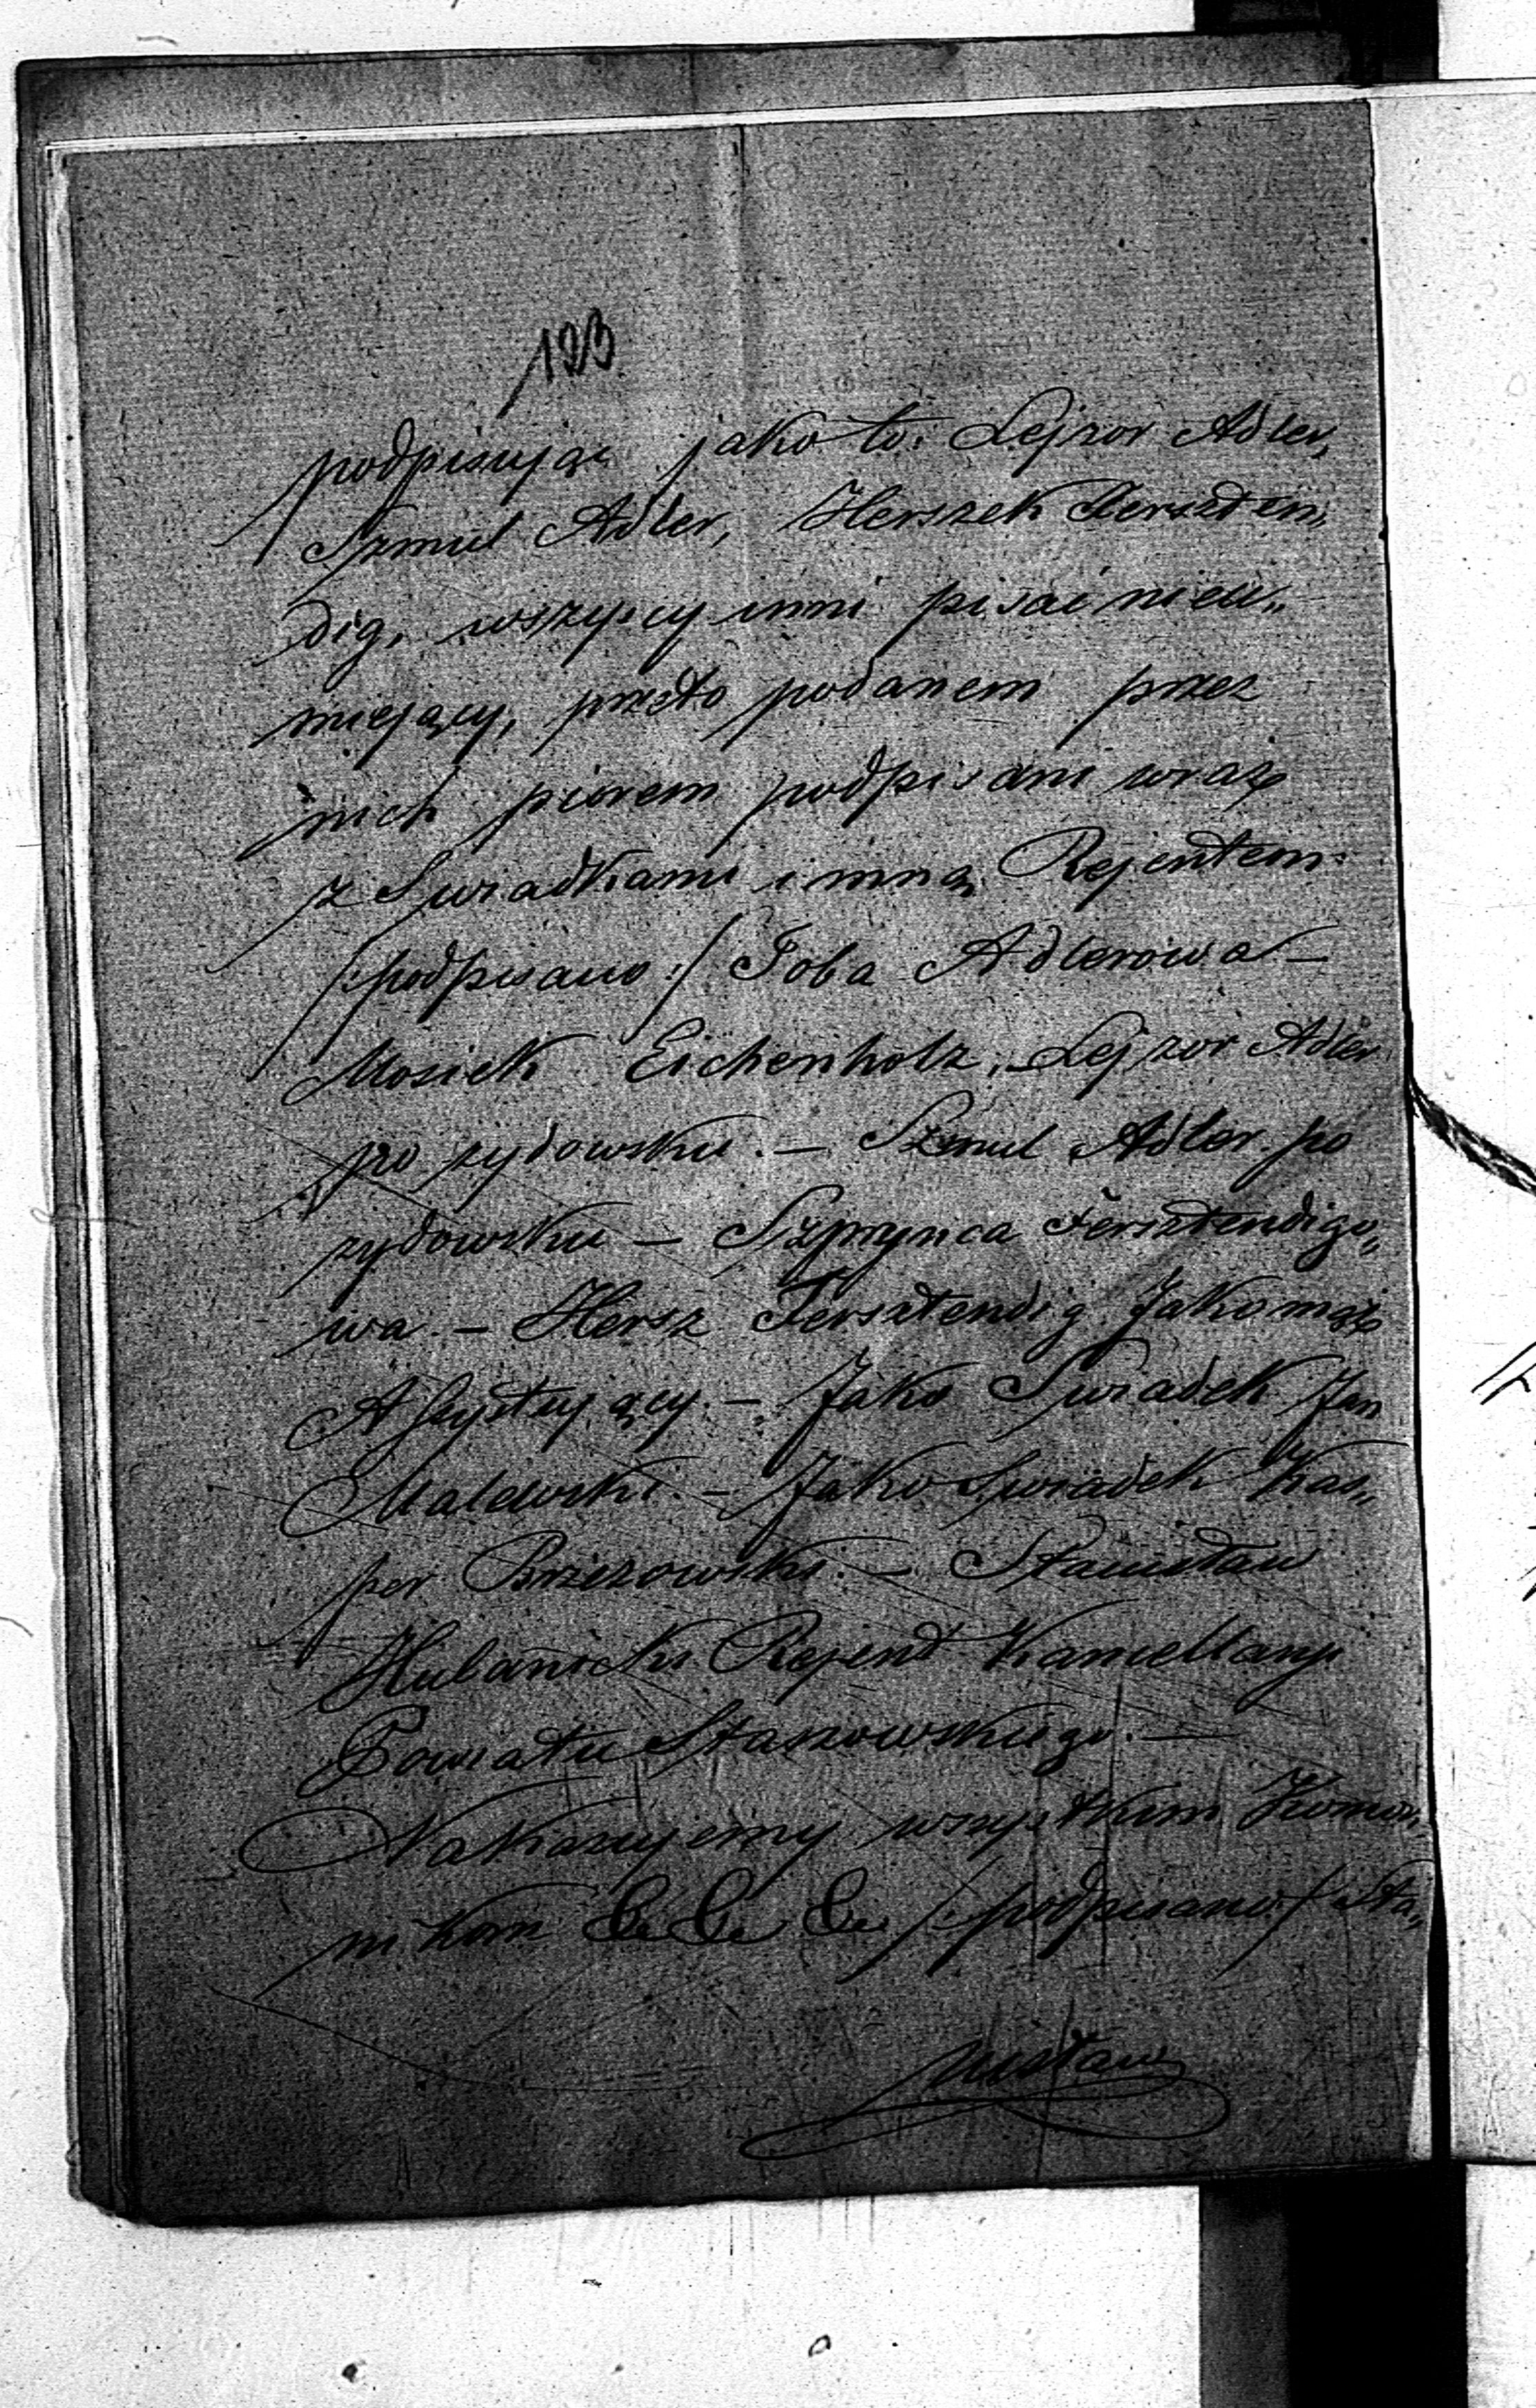 123
podpisując jako to: Lejzor Adler,
Szmul Adler, Herszek Ferszten,,
dig, wszyscy inni pisać nieu,,
miejący, przeto podanem przez
nich piórem podpisani wraz
z Świadkami i mną Rejentem
/:podpisano:/ Toba Adlerowa —
Mosiek Eichenholz, Lejzor Adler
po żydowsku. — Szmul Adler po
żydowsku — Szprynca Fersztendigo,,
wa — Hersz Fersztendig Jako mąż
Assystujący. — Jako Świadek Jan
Malewski. — Jako Świadek Kas,,
per Brzezowski. — Stanisław
Rejent Kancellaryi
Powiatu Staszowskiego. —
Nakazujemy wszystkim Komor,,
nikom &c &c &c /:podpisano:/ Sta,,
nisław